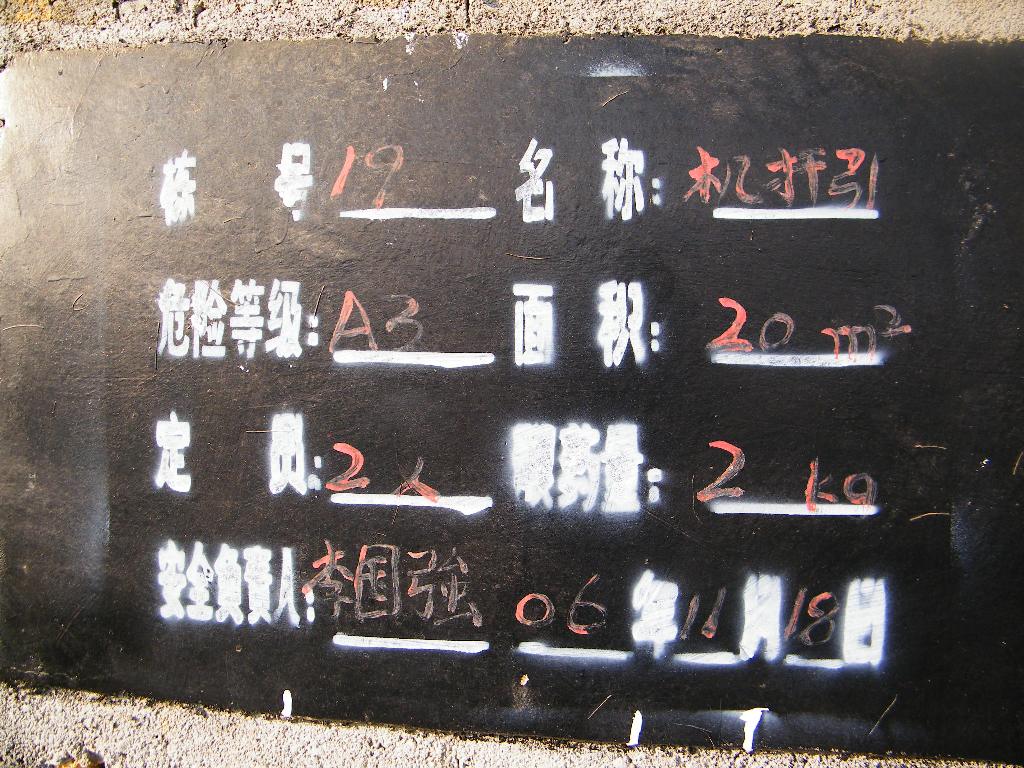 栋 号 19 名 称: 机扦引
危险等级: A3 面 积: 20 m²
定 员: 2人 限药量: 2 kg
安全负责人: 李国強 06年11月18日